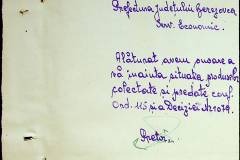 Prefectura Județului Berezovca
Serv. Economic.
Alăturat avem onoare a
vă înainta situația produselor
colectate și predate conf.
Ord. 115 și a Deciziei Nr. 1079.
Pretor,